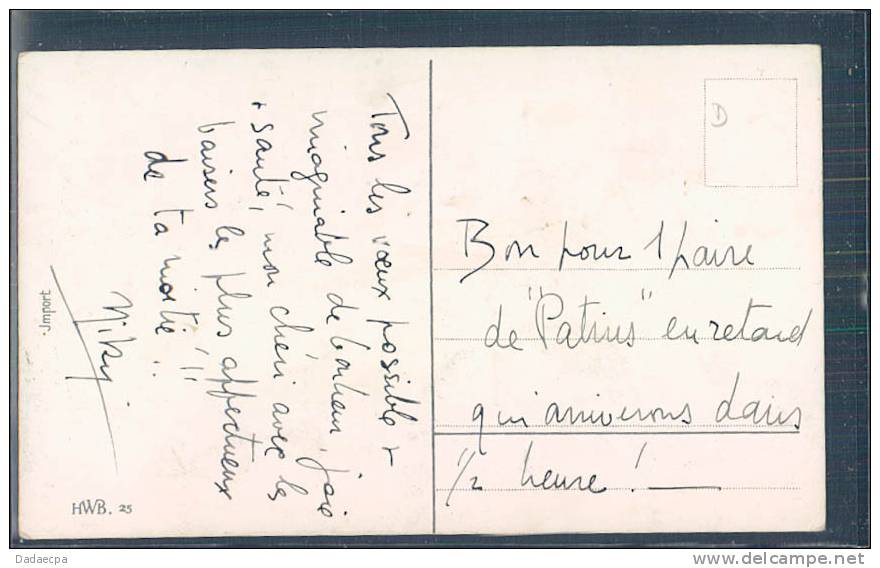 Tous les vœux possible +
imaginable de bonheur, joie
+ santé, mon chéri avec les
baisers les plus affectueux
de ta moitié !! ..
Niky.
Bon pour 1 paire
de "Patins" en retard
qui arriverons dans
1/2 heure !
D
Import
HWB. 25
Dadaecpa
delcampe.net